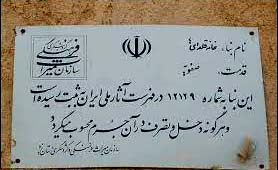 سازمان میراث فرهنگی
نام بنا: خانه
قدمت: صفویه
این بنا به شماره ۱۲۱۲۹ در فهرست آثار ملی ایران به ثبت رسیده است
و هرگونه دخل و تصرف در آن جرم محسوب میگردد
سازمان میراث فرهنگی و گردشگری استان